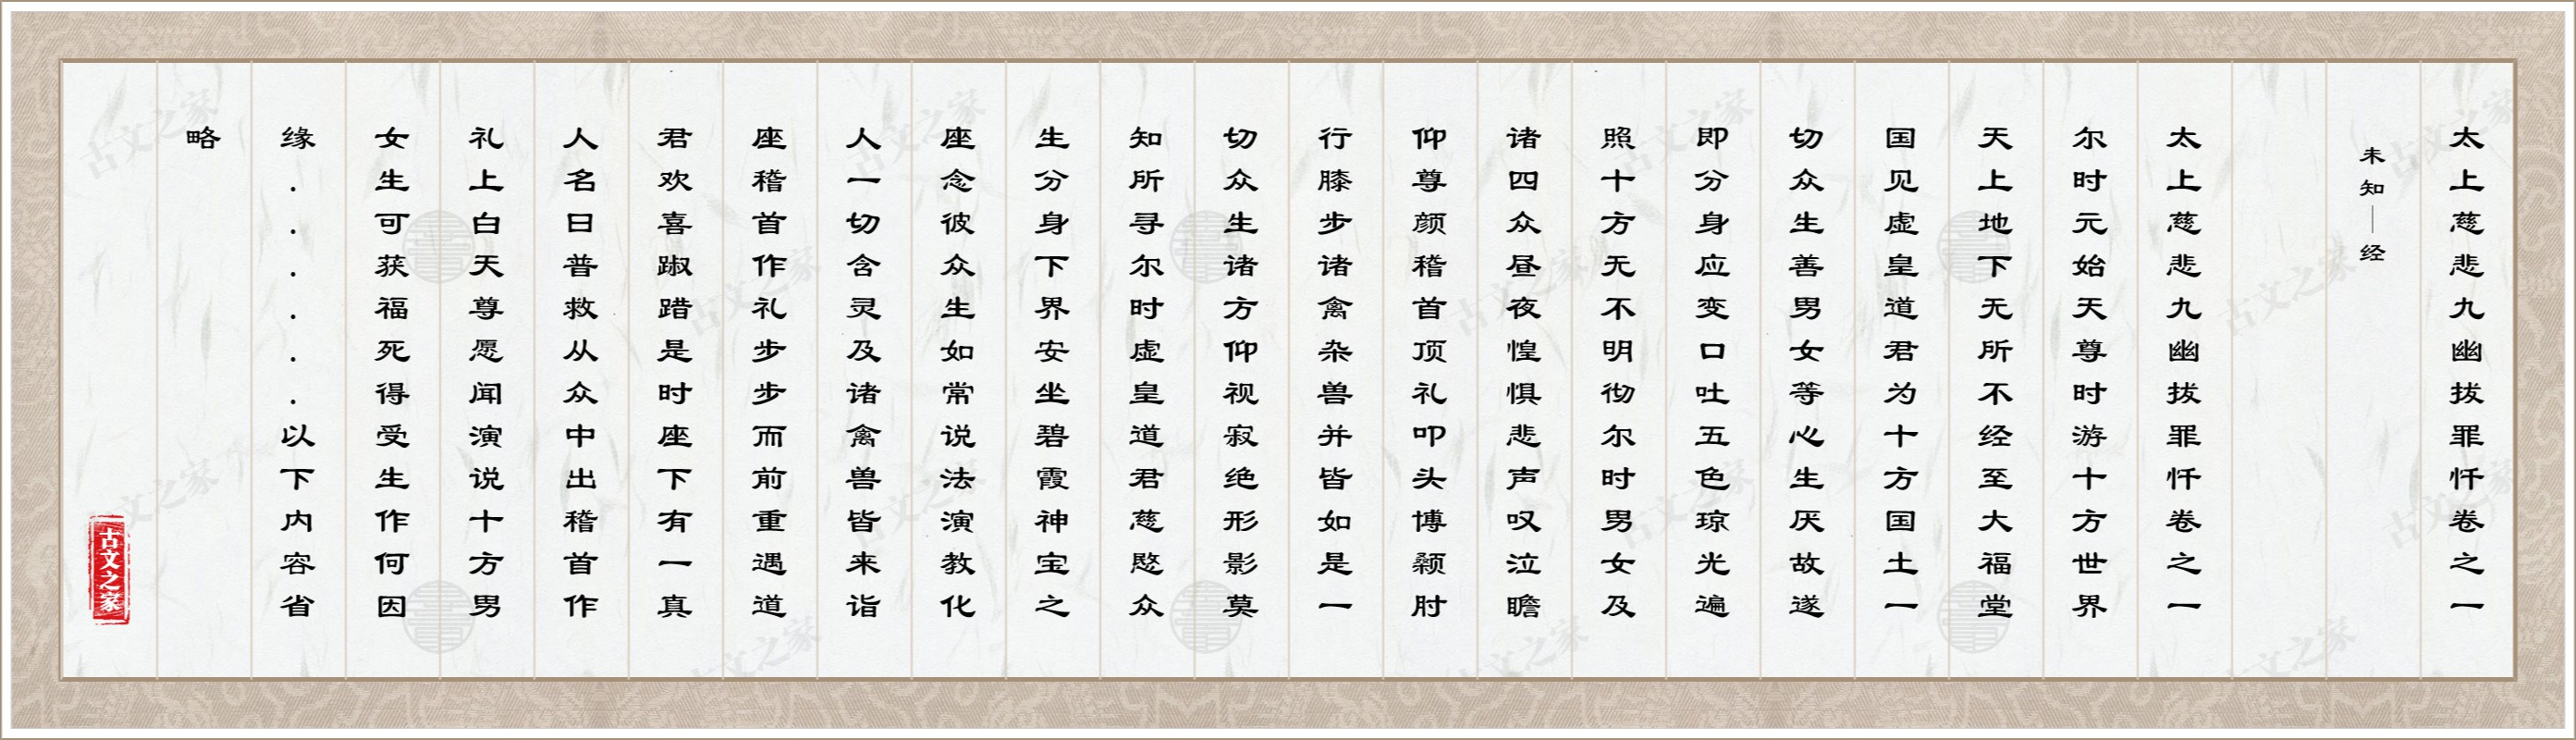 太上慈悲九幽拔罪忏卷之一
未知｜经
太上慈悲九幽拔罪忏卷之一
尔时元始天尊时游十方世界
天上地下无所不经至大福堂
国见虚皇道君为十方国土一
切众生善男女等心生厌故遂
即分身应变口吐五色琼光遍
照十方无不明彻尔时男女及
诸四众昼夜惶惧悲声叹泣瞻
仰尊颜稽首顶礼叩头博颡肘
行膝步诸禽杂兽并皆如是一
切众生诸方仰视寂绝形影莫
知所寻尔时虚皇道君慈愍众
生分身下界安坐碧霞神宝之
座念彼众生如常说法演教化
人一切含灵及诸禽兽皆来诣
座稽首作礼步步而前重遇道
君欢喜踧踖是时座下有一真
人名曰普救从众中出稽首作
礼上白天尊愿闻演说十方男
女生可获福死得受生作何因
缘......以下内容省
略
古文之家